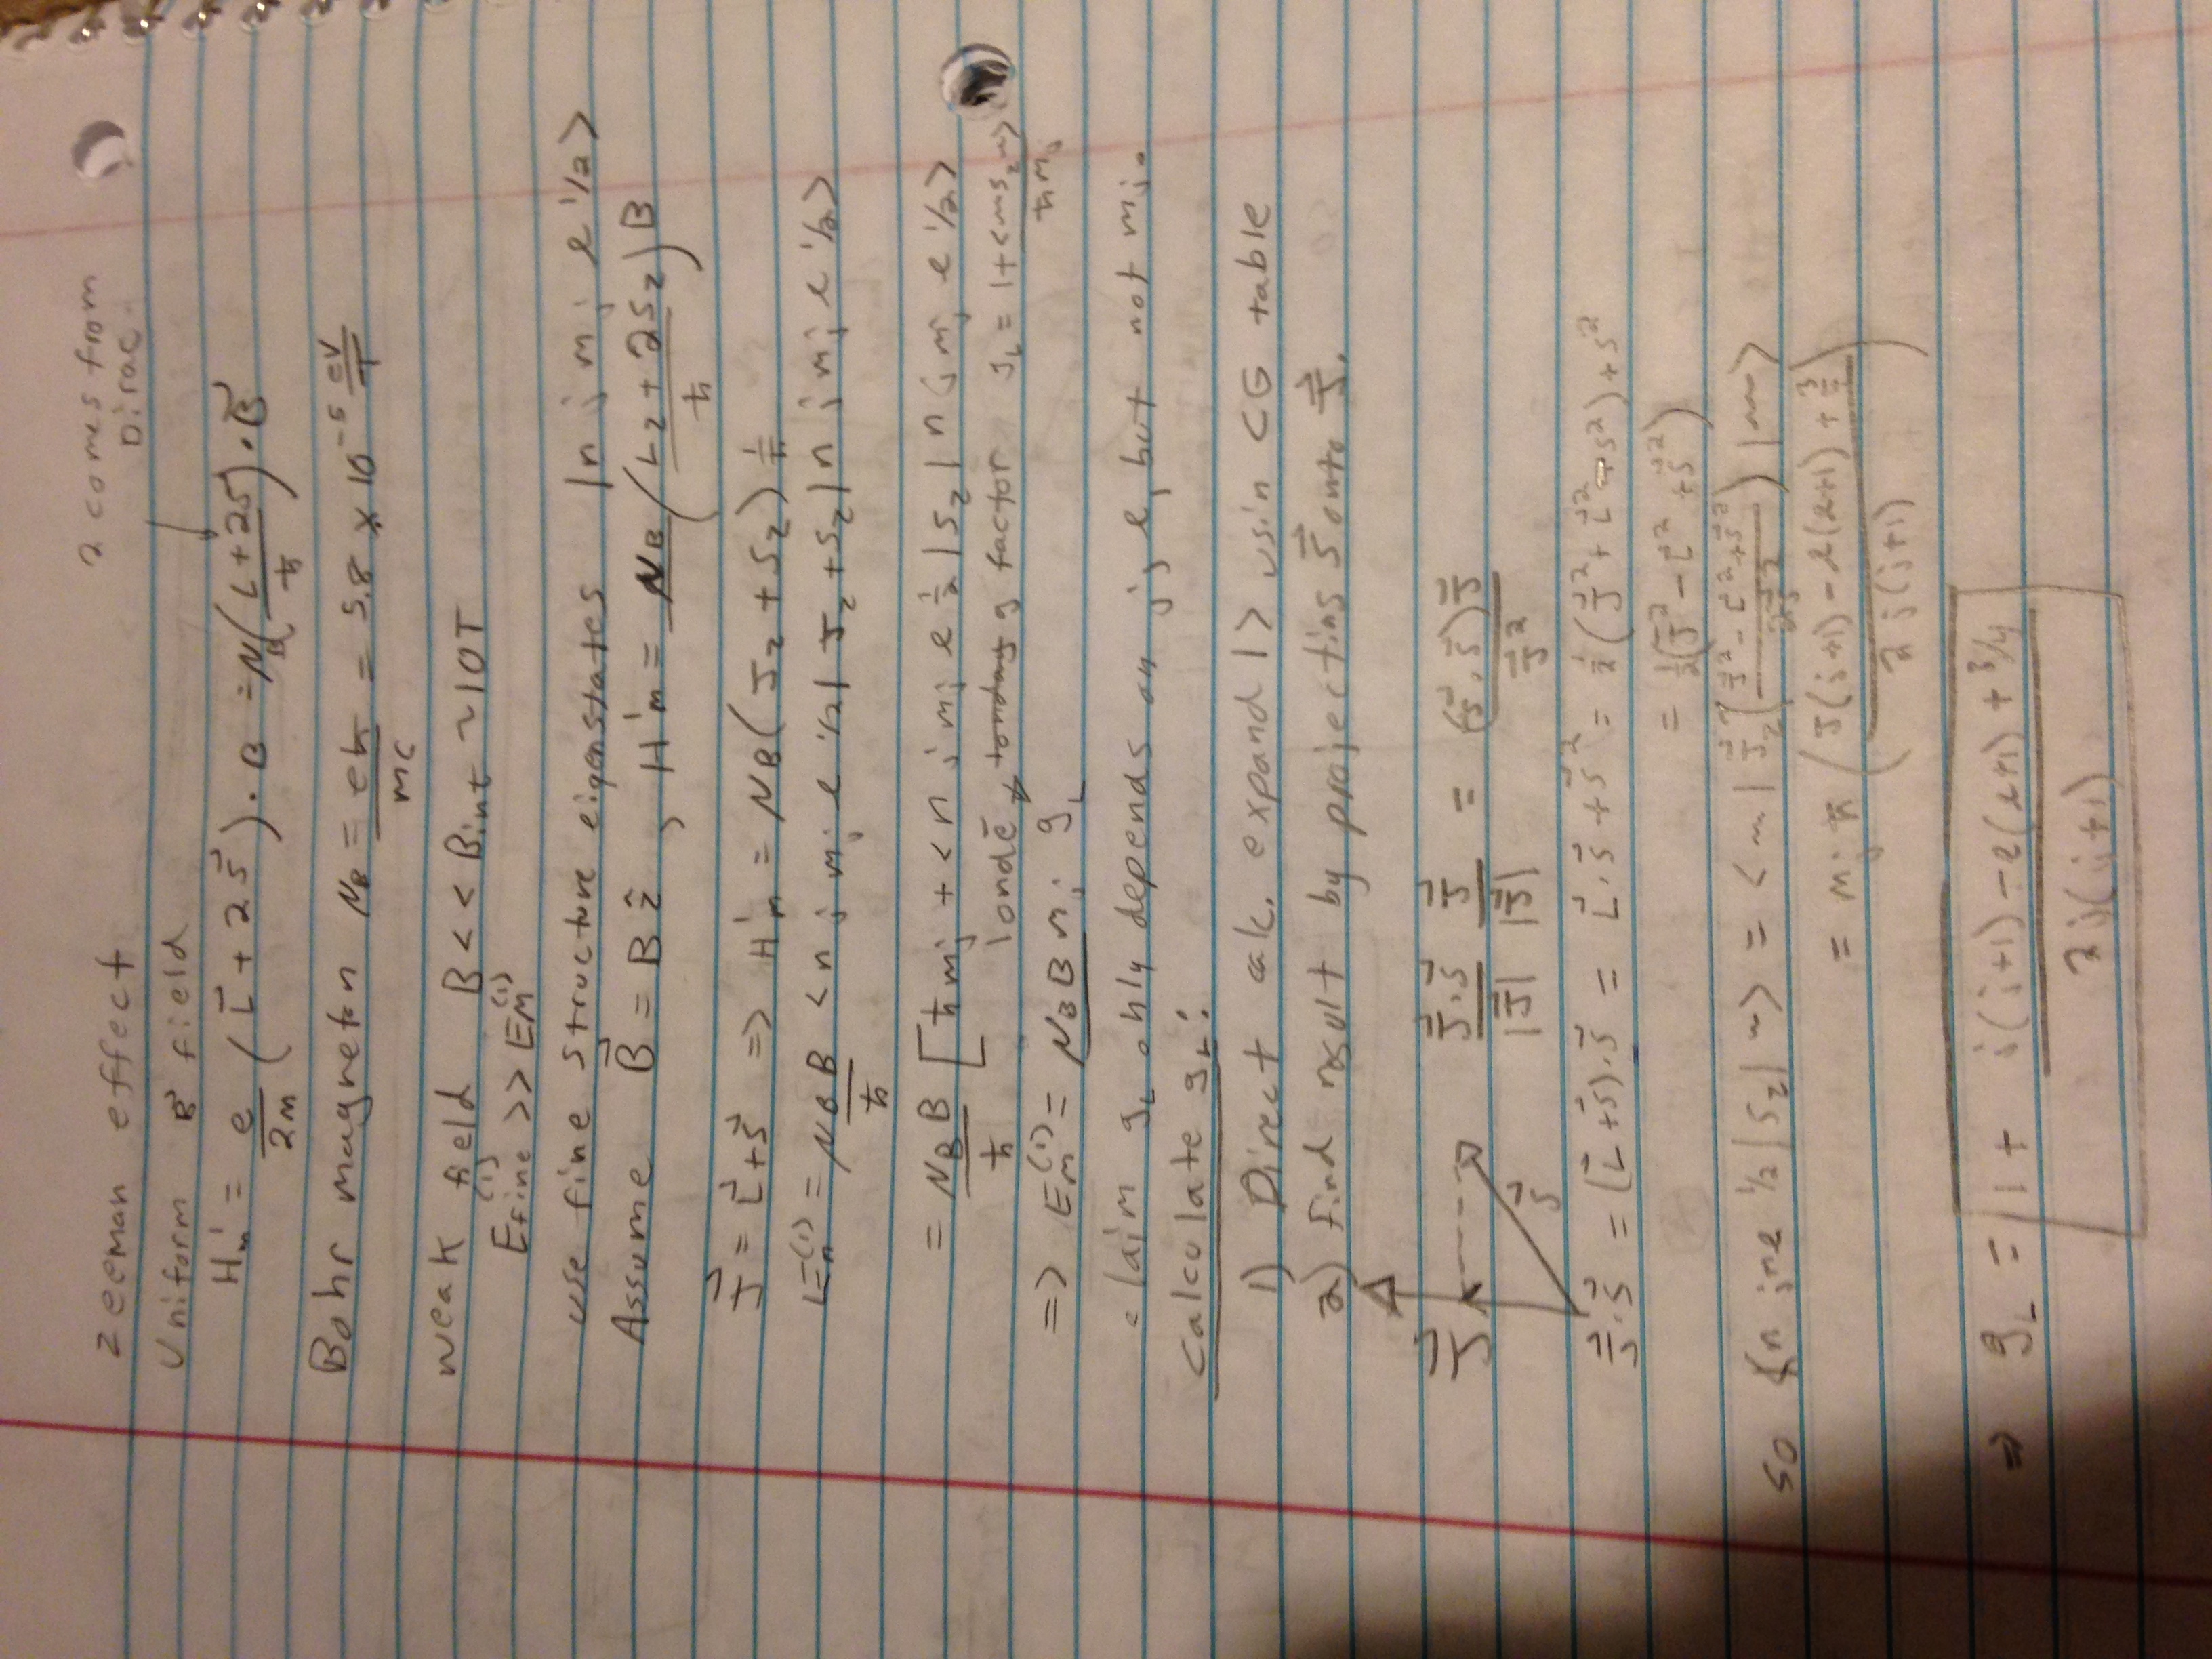 Zeeman effect
2 comes from
Dirac
Uniform B⃗ field
H'ₘ = e/2m (L⃗ + 2S⃗) · B = μ_B((L+2S)/ħ) · B⃗
Bohr magneton μ_B = eħ/mc = 5.8 × 10⁻⁵ eV/T
weak field B << B_int ~10T
E_fine⁽¹⁾ >> E_m⁽¹⁾
use fine structure eigenstates |n j m_j ℓ 1/2>
Assume B⃗ = Bẑ , H'ₘ = μ_B((L_z + 2S_z)/ħ)B
J⃗ = L⃗+S⃗ => H'ₘ = μ_B(J_z + S_z) 1/ħ
E_n⁽¹⁾ = μ_B B/ħ <n j m_j ℓ 1/2| J_z + S_z |n j m_j ℓ 1/2>
= μ_B B/ħ [ħm_j + <n j m_j ℓ 1/2 |S_z| n j m_j ℓ 1/2>
londē g factor g_L = 1 + <~S_z~>/ħm_j
=> E_m⁽¹⁾ = μ_B B m_j g_L
claim g_L only depends on j, ℓ, but not m_j.
calculate g_L:
1) Direct calc. expand |> usin CG table
2) find result by projecting S⃗ onto J⃗.
J⃗ S⃗ (J⃗·S⃗)/|J⃗| J⃗/|J⃗| = (J⃗·S⃗)J⃗/J⃗²
J⃗·S⃗ = (L⃗+S⃗)·S⃗ = L⃗·S⃗ + S⃗² = 1/2(J⃗² + L⃗² - S²) + S²
= 1/2(J⃗² - L⃗² + S⃗²)
so <n j m ℓ 1/2 |S_z| ~> = <~| J_z((J⃗² - L⃗² + S⃗²)/2J⃗²) |~>
= m_j ħ ((J(j+1) - ℓ(ℓ+1) + 3/4)/2j(j+1))
⇒ g_L = 1 + (j(j+1) - ℓ(ℓ+1) + 3/4)/2j(j+1)